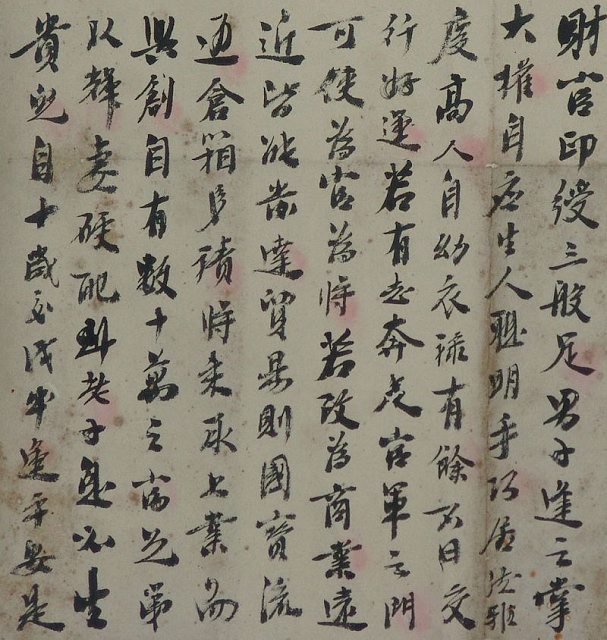 財官印綬三般足男子逢之掌
大權自应生人聪明手巧居流班
度高人自幼衣祿有餘不日交
行好運若有志奔虎官軍之門
可使為官為將若改為商業遠
近皆能發達貿易則國寶流
通倉箱身積將來承上業而
興創自有数十萬之富兄弟
以輝妻硬配對老子息必生
貴兒自十歲交戊午運平安是